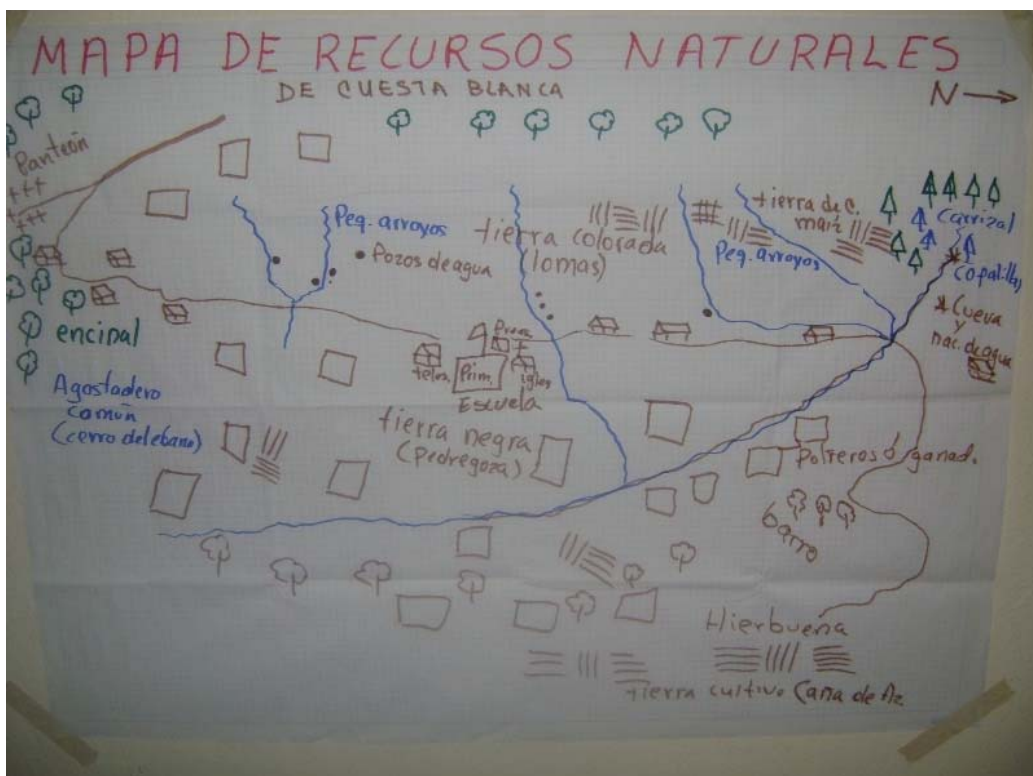 MAPA DE RECURSOS NATURALES
DE CUESTA BLANCA
N
Panteón
Peq. arroyos
Pozos de agua
tierra colorada
(lomas)
tierra de c.
maíz
Peq. arroyos
Carrizal
Copalillo
Cueva
y
nac. de agua
encinal
Agostadero
común
(cerro del ebano)
telea.
Prim.
Escuela
Igles
tierra negra
(pedregoza)
Potreros ó ganad.
barro
Hierbueña
tierra cultivo Caña de Az.